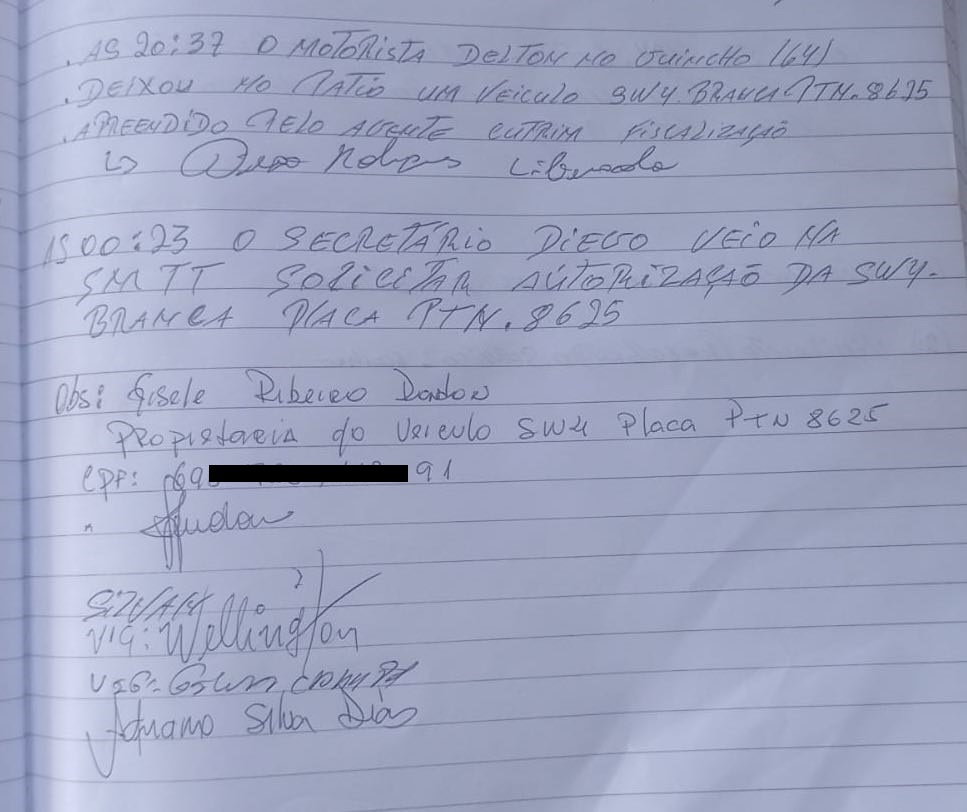 .AS 20:37 O MOTORISTA DELTON NO GUINCHO (64)
.DEIXOU NO PATIO UM VEICULO SW4. BRANCA PTN. 8625
.APREENDIDO PELO AGENTE CUTRIM FISCALIZAÇÃO
Liberado
AS 00:23 O SECRETÁRIO DIEGO VEIO NA
SMTT SOLICITAR AUTORIZAÇÃO DA SW4.
BRANCA PLACA PTN. 8625
Obs: Gisele Ribeiro
Propietareia do Veiculo SW4 Placa PTN 8625
CPF: 069 91
VIG: Wellington
VIG:
Adriano Silva Dias